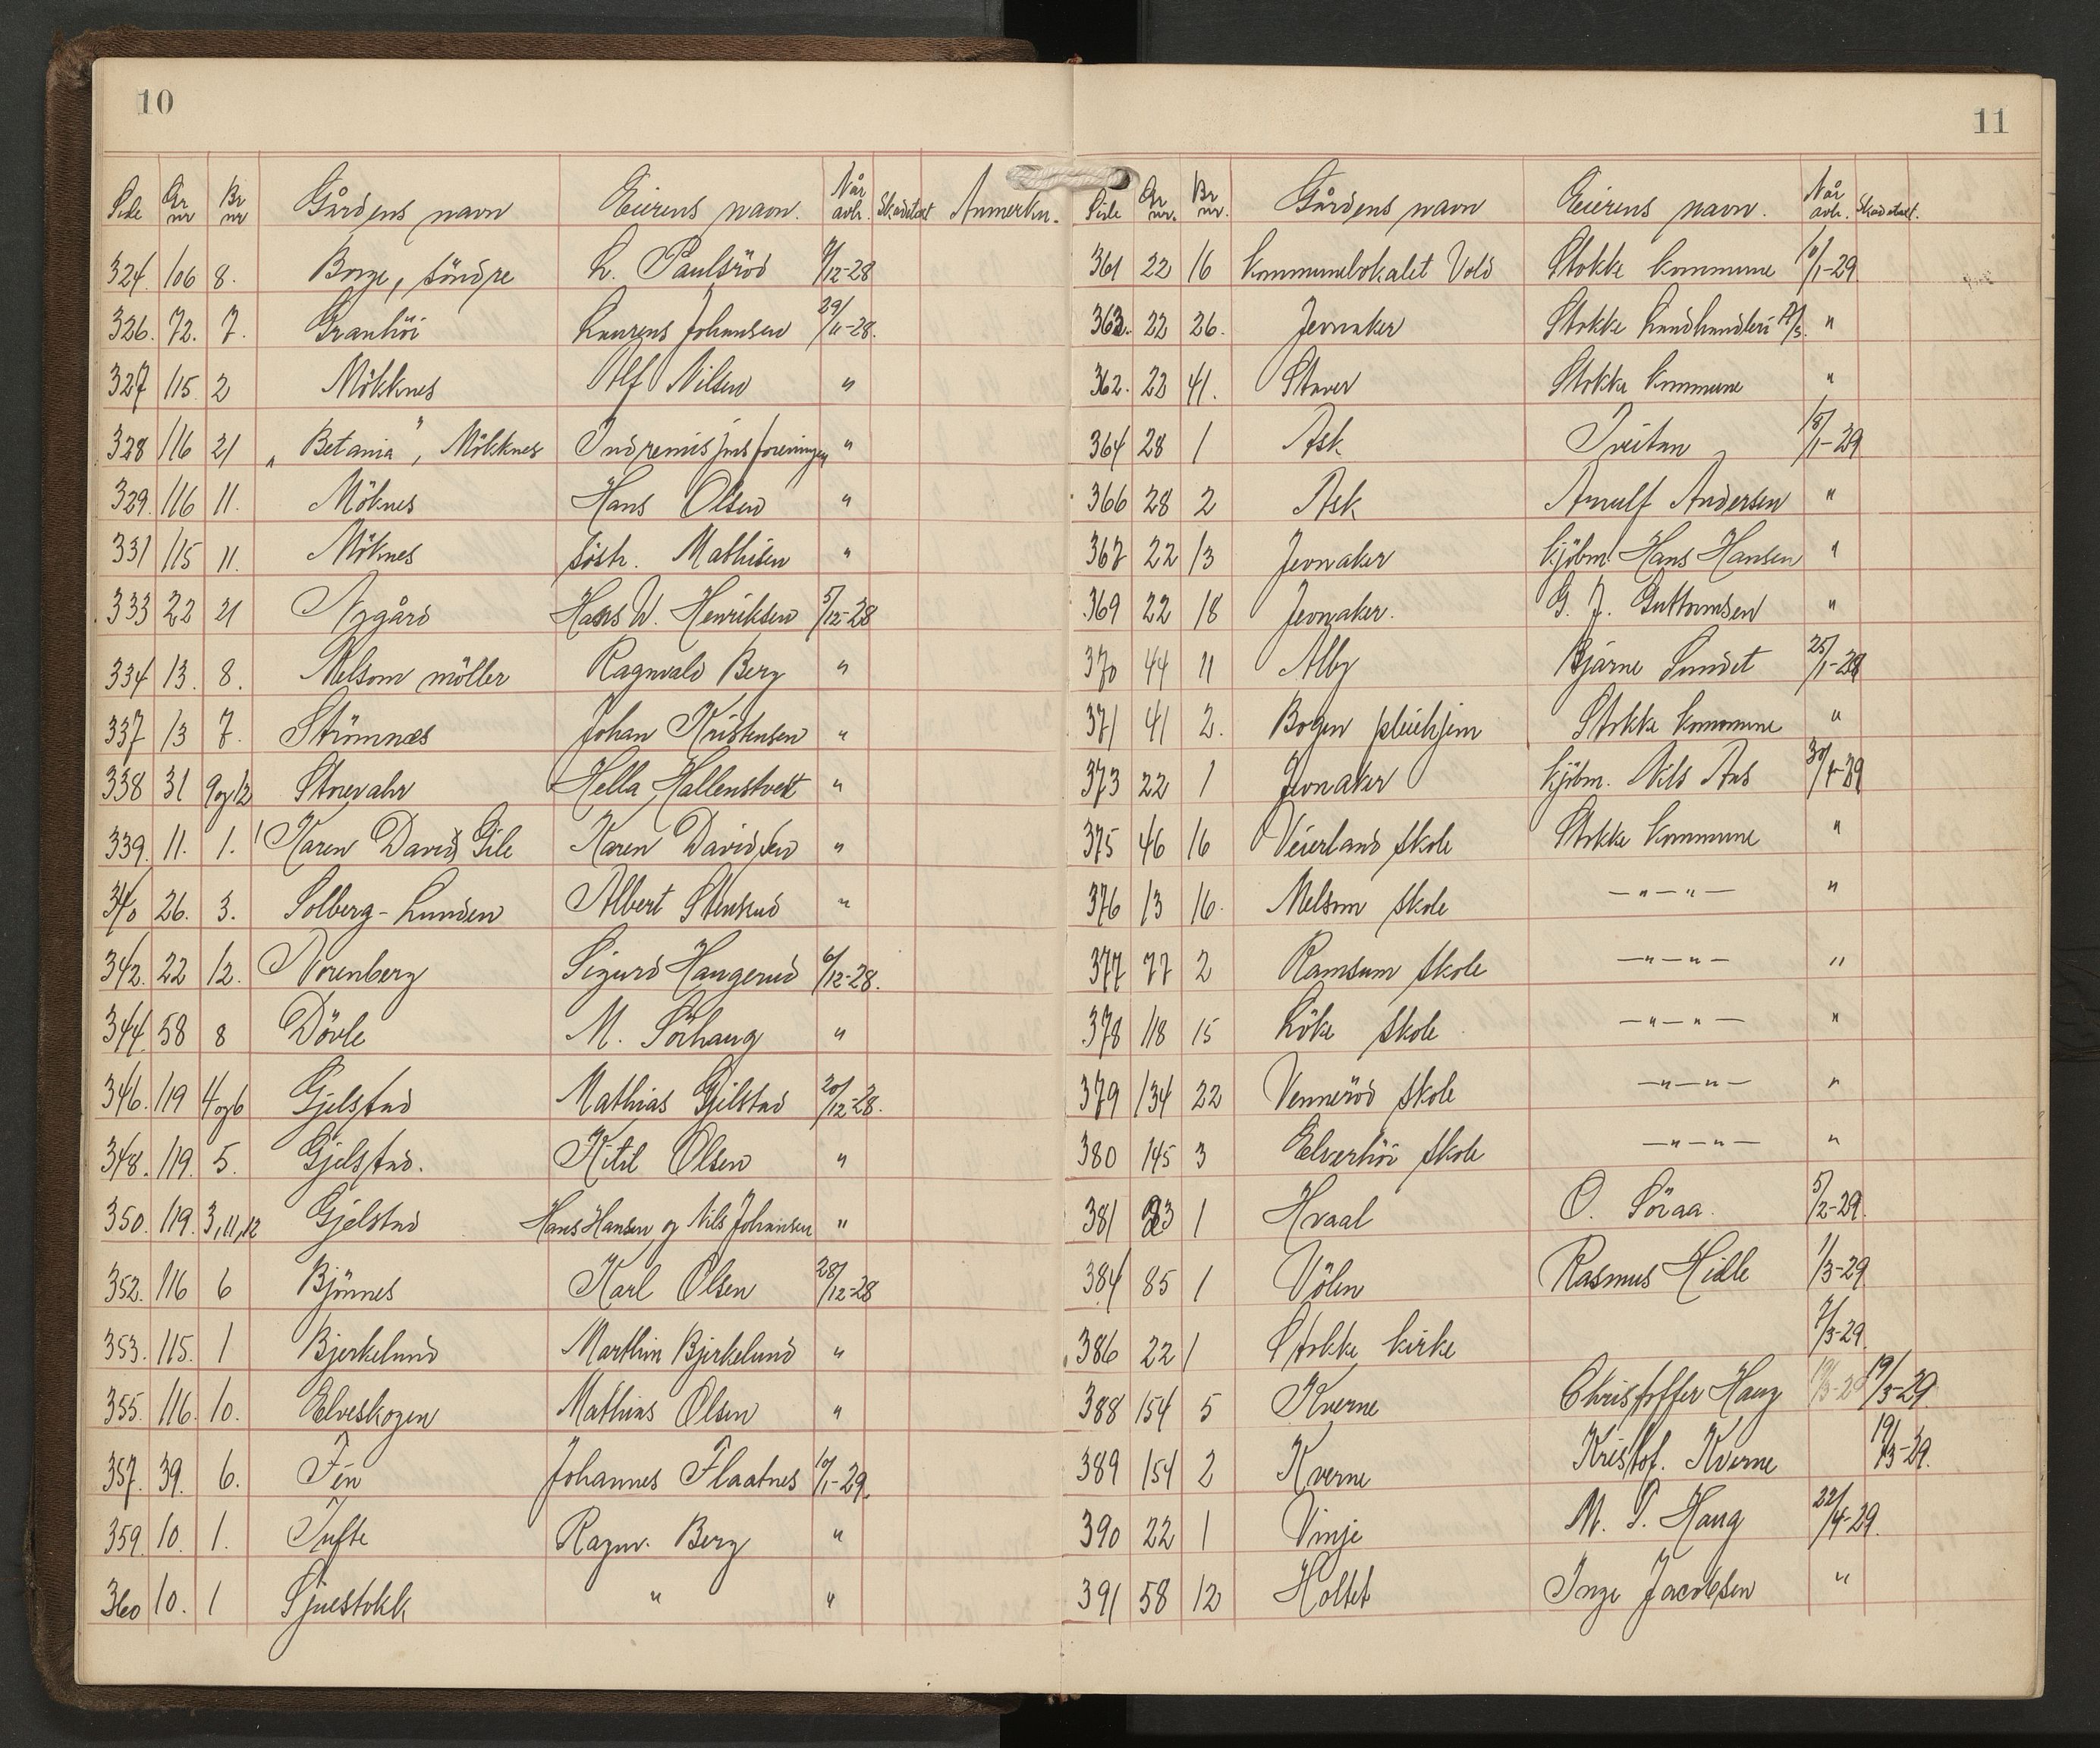 10
Side Gr nr Br nr Gårdens navn Eierens navn. Når avh. Skadetaxt Anmerkn.
324. 106 8. Borge, söndre L. Paulsröd 7/12-28
326. 72. 7. Granhöi Laurens Johansen 29/11-28.
327 115. 2 Mökknes Alf Nilsen "
328 116 21 "Betania", Mökknes Indremisjonsforeningen "
329. 116 11. Möknes Hans Olsen "
331 115 11. Möknes Mathisen "
333 22 21 Nygård Hans W. Henriksen 5/12-28
334 13. 8. Melsom möller Ragnvald Berg "
337 13 7. Strömnæs Johan Kristensen "
338 31 9og12 Storevahr Hella Hallenstvet "
339. 11. 1. Karen Davids Gile Karen Davidsen "
340 26. 3. Solberg-Lunden Albert Stensrud "
342. 22 12. Norenberg Sigurd Haugerud 6/12-28.
344. 58 8 Dövle M. Sörhaug "
346. 119 4og6 Gjelstad Mathias Gjelstad 20/12-28.
348. 119. 5. Gjelstad. Kitil Olsen "
350. 119. 3,11,12 Gjelstad Hans Hansen og Nils Johansen "
352. 116 6 Bjönnes Karl Olsen 28/12-28
353. 115. 1 Bjerkelund Marthin Bjerkelund "
355. 116. 10. Elveskogen Mathias Olsen "
357. 39. 6. Fen Johannes Flaatnes 10/1-29.
359. 10. 1. Tufte Ragnv. Berg "
360 10. 1 Sjuestokk " "
11
Side Gr nr. Br nr. Gårdens navn Eierens navn. Når avh. Skadetaxt.
361 22 16 Kommunelokalet Vold Stokke kommune 10/1-29.
363. 22 26. Jevnaker Stokke Landhandleri A/S. "
362. 22 41. Staver Stokke kommune "
364 28 1 Ask Tveitan 15/1-29
366 28 2 Ask Arnulf Andersen "
367 22 13 Jevnaker kjöbm. Hans Hansen "
369 22 18 Jevnaker. G. J. Guttormsen "
370 44 11 Alby Bjarne Sundet 25/1-28
371 41 2. Bogen pleiehjem Stokke kommune "
373 22 1 Jevnaker kjöbm. Nils Aas
375 46 16 Veierland skole Stokke kommune "
376 13 16. Melsom skole —"—"— "
377 77 2 Ramsum skole —"—"— "
378 118 15 Löke skole —"—"— "
379 134 22 Venneröd skole —"—"— "
380 145 3 Elverhöi skole —"—"— "
381 83 1 Hvaal O. Söraa. 5/2-29.
384 85 1 Völen Rasmus Hidle 1/3-29
386 22 1 Stokke kirke 7/3-29.
388 154 5 Kverne Christoffer Haug 19/3-29 19/3-29.
389 154 2 Kverne Kristof. Kverne 19/3-29.
390 22 1 Vinje M. P. Haug 22/4-29.
391 58 12 Holtet Inge Jacobsen "